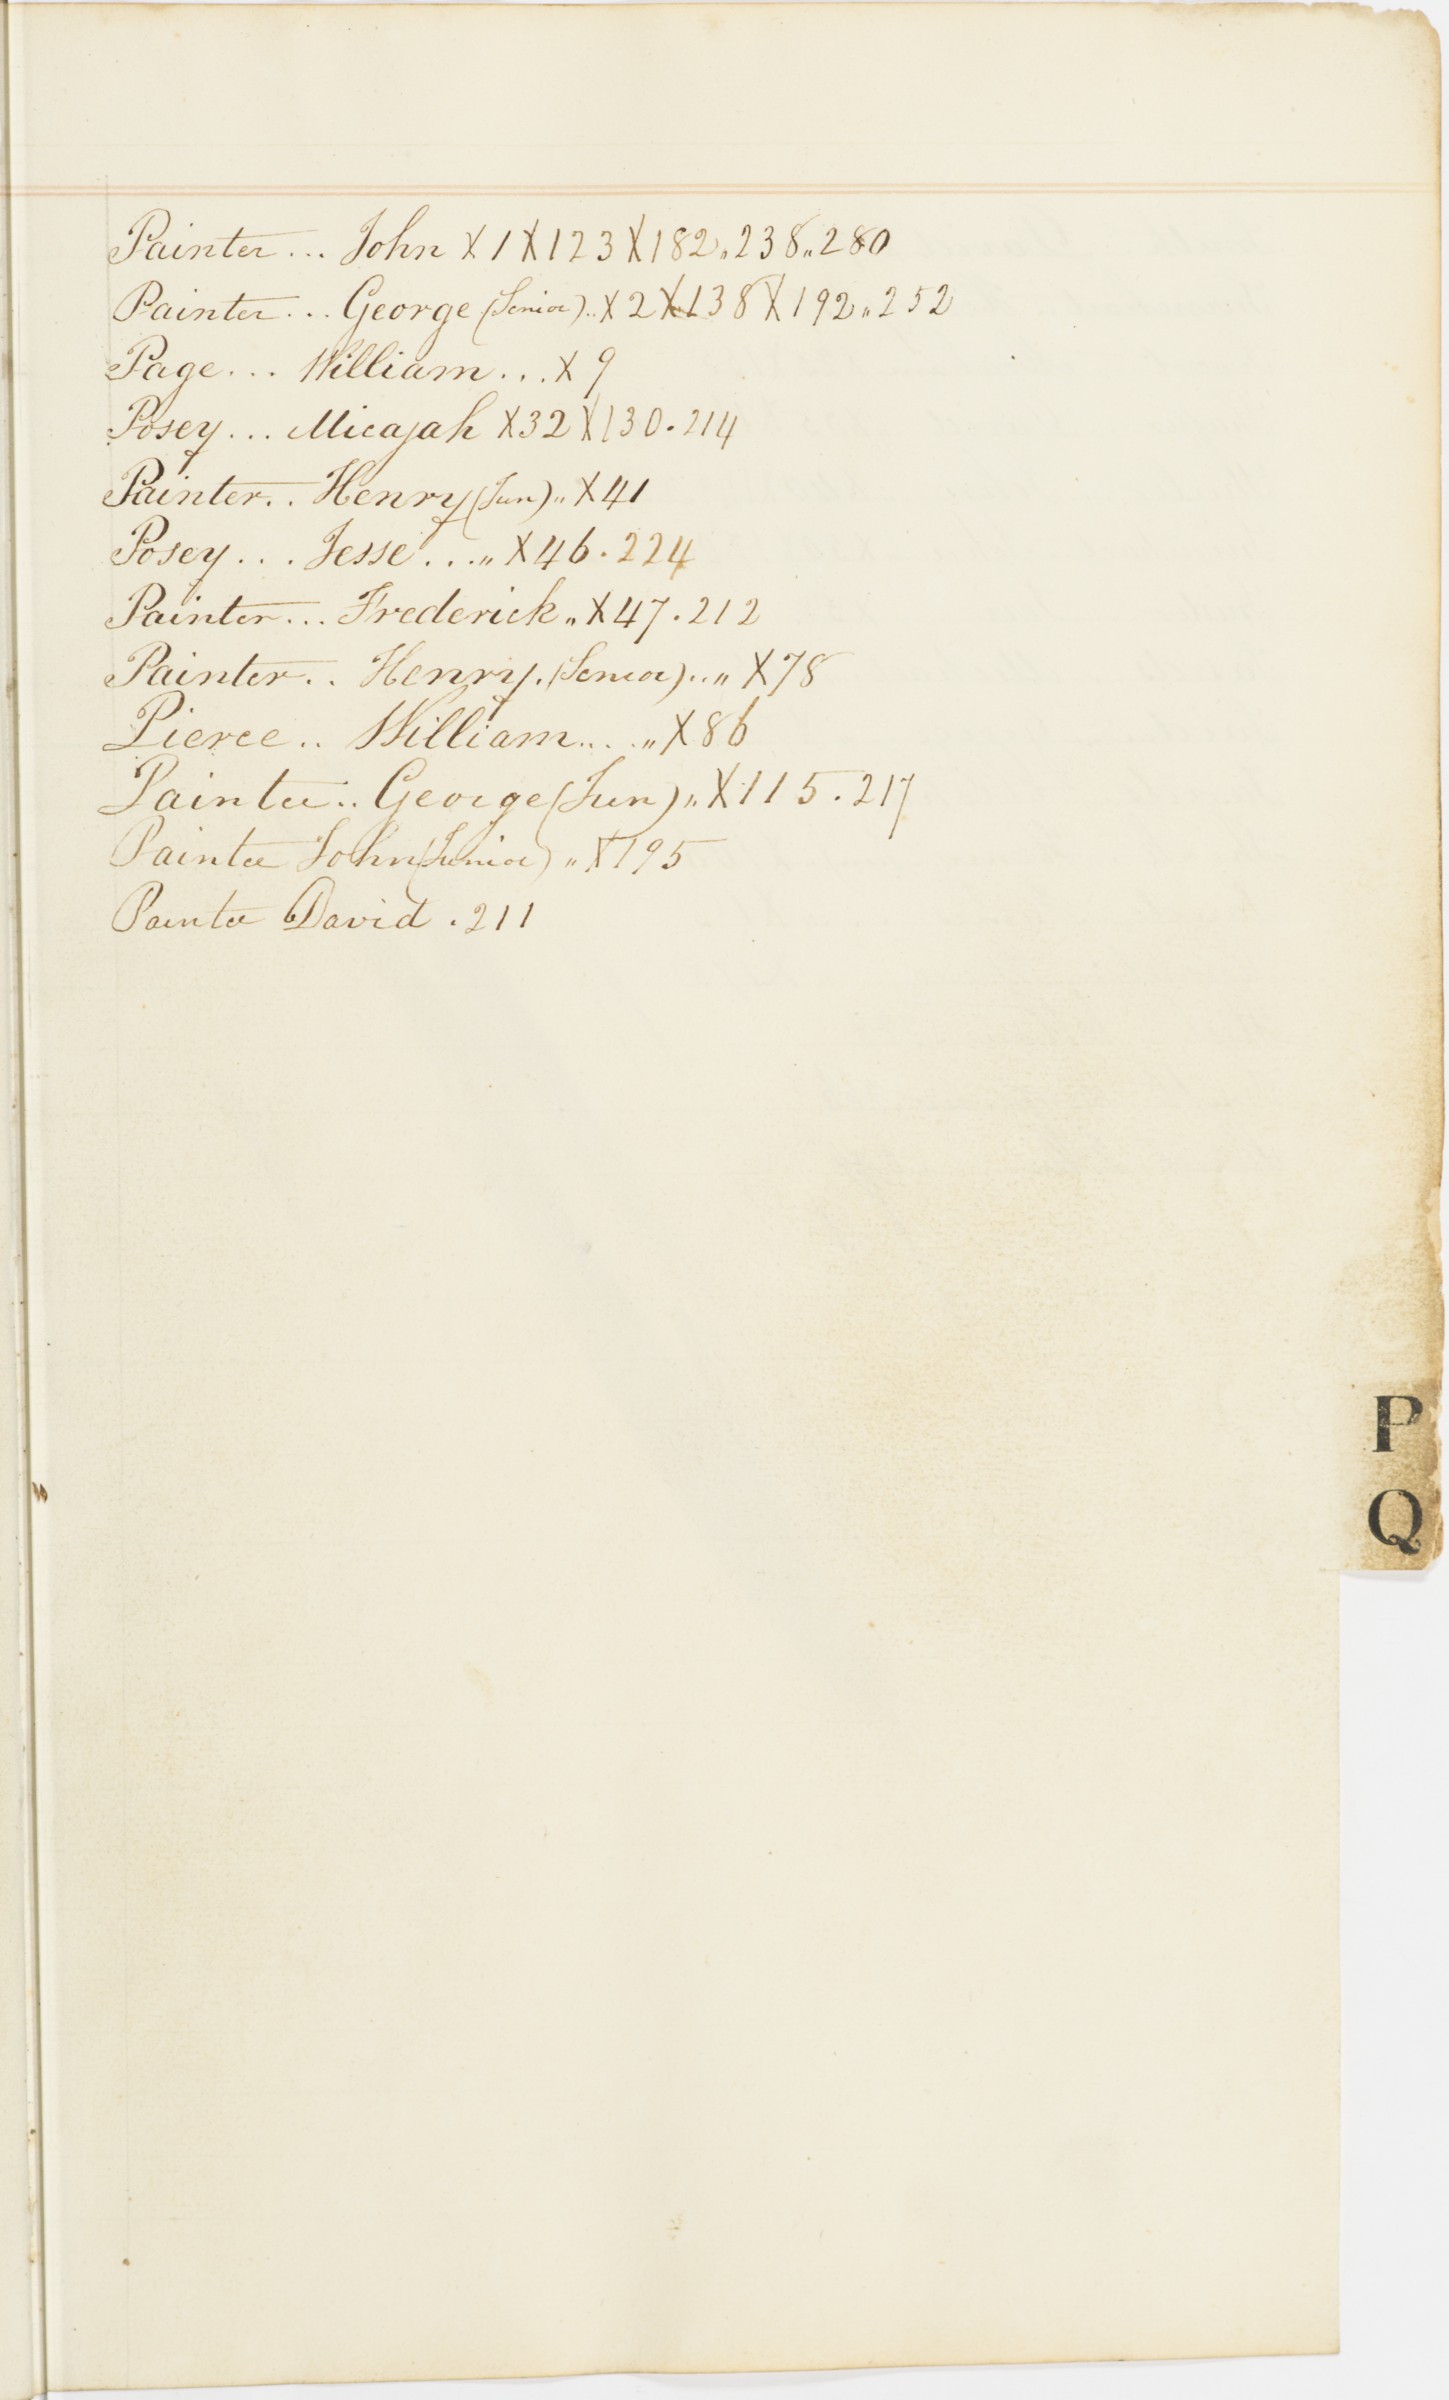 Painter... John X 1 X 123 X 182„238„280
Painter... George (Senior).. X 2 X 138 X 192„252
Page... William... X 9
Posey... Micajah X 32 X 130.214
Painter.. Henry (Jun)„ X 41
Posey... Jesse...„ X 46.224
Painter... Frederick„ X 47.212
Painter.. Henry. (Senior)..„ X 78
Pierce.. William....„ X 86
Painter.. George (Jun)„ X 115.217
Painter John (Junior)„ X 195
Painter David.211
P
Q